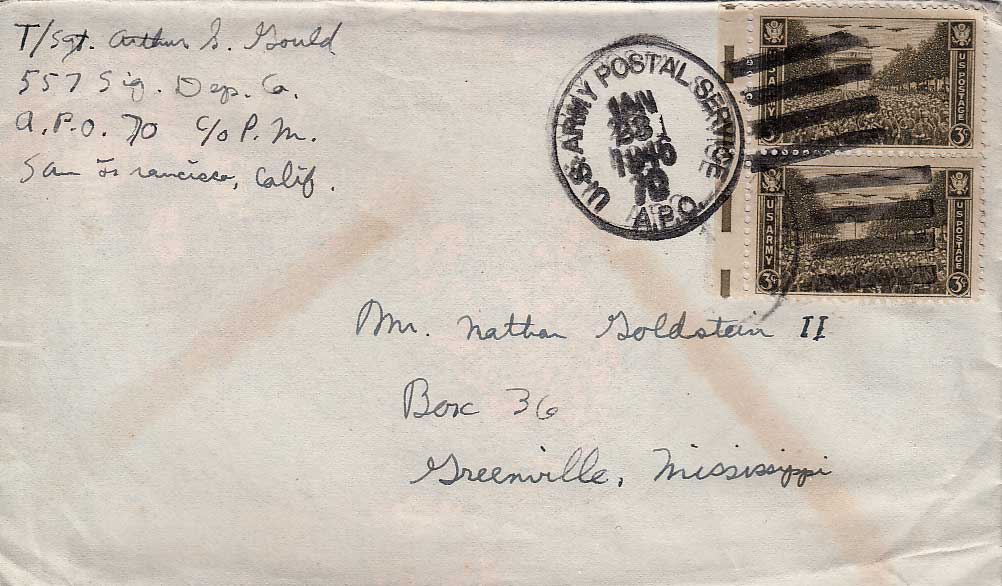 T/Sgt. Arthur S. Gould
557 Sig. Dep. Co.
A.P.O. 70 C/O P.M.
San Francisco, Calif.
U.S. ARMY POSTAL SERVICE
JAN
1946
70
A.P.O.
U.S. ARMY
US POSTAGE
3¢
3¢
US ARMY
US POSTAGE
3¢
3¢
Mr. Nathan Goldstein II
Box 36
Greenville, Mississippi